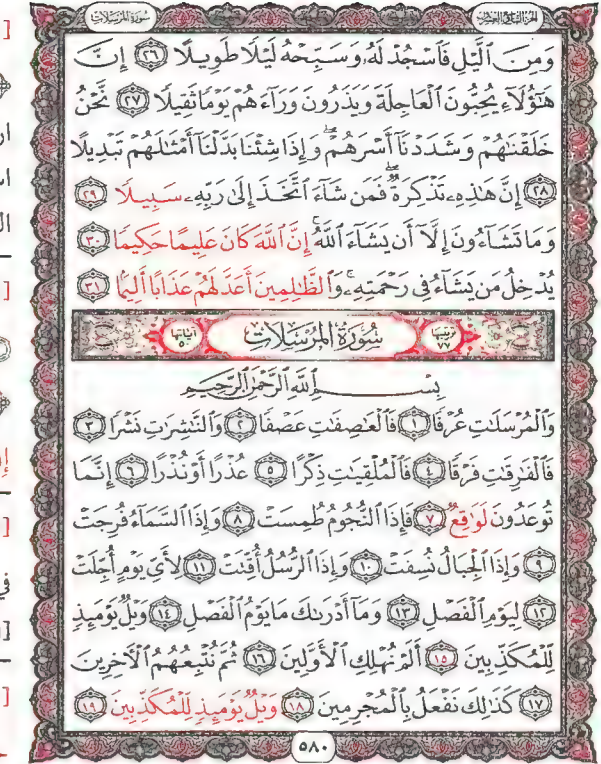 سورة المرسلات
الجزء التاسع والعشرون
وَمِنَ ٱلَّيۡلِ فَٱسۡجُدۡ لَهُۥ وَسَبِّحۡهُ لَيۡلٗا طَوِيلًا ٢٦ إِنَّ
هَٰٓؤُلَآءِ يُحِبُّونَ ٱلۡعَاجِلَةَ وَيَذَرُونَ وَرَآءَهُمۡ يَوۡمٗا ثَقِيلٗا ٢٧ نَّحۡنُ
خَلَقۡنَٰهُمۡ وَشَدَدۡنَآ أَسۡرَهُمۡۖ وَإِذَا شِئۡنَا بَدَّلۡنَآ أَمۡثَٰلَهُمۡ تَبۡدِيلًا
٢٨ إِنَّ هَٰذِهِۦ تَذۡكِرَةٞۖ فَمَن شَآءَ ٱتَّخَذَ إِلَىٰ رَبِّهِۦ سَبِيلٗا ٢٩
وَمَا تَشَآءُونَ إِلَّآ أَن يَشَآءَ ٱللَّهُۚ إِنَّ ٱللَّهَ كَانَ عَلِيمًا حَكِيمٗا ٣٠
يُدۡخِلُ مَن يَشَآءُ فِي رَحۡمَتِهِۦۚ وَٱلظَّٰلِمِينَ أَعَدَّ لَهُمۡ عَذَابًا أَلِيمَۢا ٣١
ترتيبها ٧٧ سُورَةُ المُرْسَلَاتِ آياتها ٥٠
بِسۡمِ ٱللَّهِ ٱلرَّحۡمَٰنِ ٱلرَّحِيمِ
وَٱلۡمُرۡسَلَٰتِ عُرۡفٗا ١ فَٱلۡعَٰصِفَٰتِ عَصۡفٗا ٢ وَٱلنَّٰشِرَٰتِ نَشۡرٗا ٣
فَٱلۡفَٰرِقَٰتِ فَرۡقٗا ٤ فَٱلۡمُلۡقِيَٰتِ ذِكۡرًا ٥ عُذۡرًا أَوۡ نُذۡرًا ٦ إِنَّمَا
تُوعَدُونَ لَوَٰقِعٞ ٧ فَإِذَا ٱلنُّجُومُ طُمِسَتۡ ٨ وَإِذَا ٱلسَّمَآءُ فُرِجَتۡ
٩ وَإِذَا ٱلۡجِبَالُ نُسِفَتۡ ١٠ وَإِذَا ٱلرُّسُلُ أُقِّتَتۡ ١١ لِأَيِّ يَوۡمٍ أُجِّلَتۡ
١٢ لِيَوۡمِ ٱلۡفَصۡلِ ١٣ وَمَآ أَدۡرَىٰكَ مَا يَوۡمُ ٱلۡفَصۡلِ ١٤ وَيۡلٞ يَوۡمَئِذٖ
لِّلۡمُكَذِّبِينَ ١٥ أَلَمۡ نُهۡلِكِ ٱلۡأَوَّلِينَ ١٦ ثُمَّ نُتۡبِعُهُمُ ٱلۡأٓخِرِينَ
١٧ كَذَٰلِكَ نَفۡعَلُ بِٱلۡمُجۡرِمِينَ ١٨ وَيۡلٞ يَوۡمَئِذٖ لِّلۡمُكَذِّبِينَ ١٩
٥٨٠